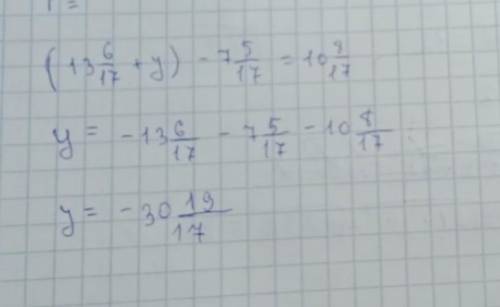 (13 6/17 + y) - 7 5/17 = 10 8/17
y = -13 6/17 - 7 5/17 - 10 8/17
y = -30 19/17